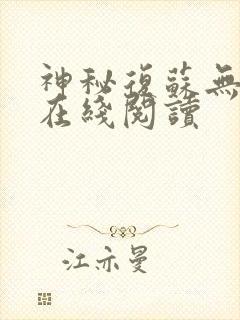 神秘復蘇無
在綫閱讀
江亦曼